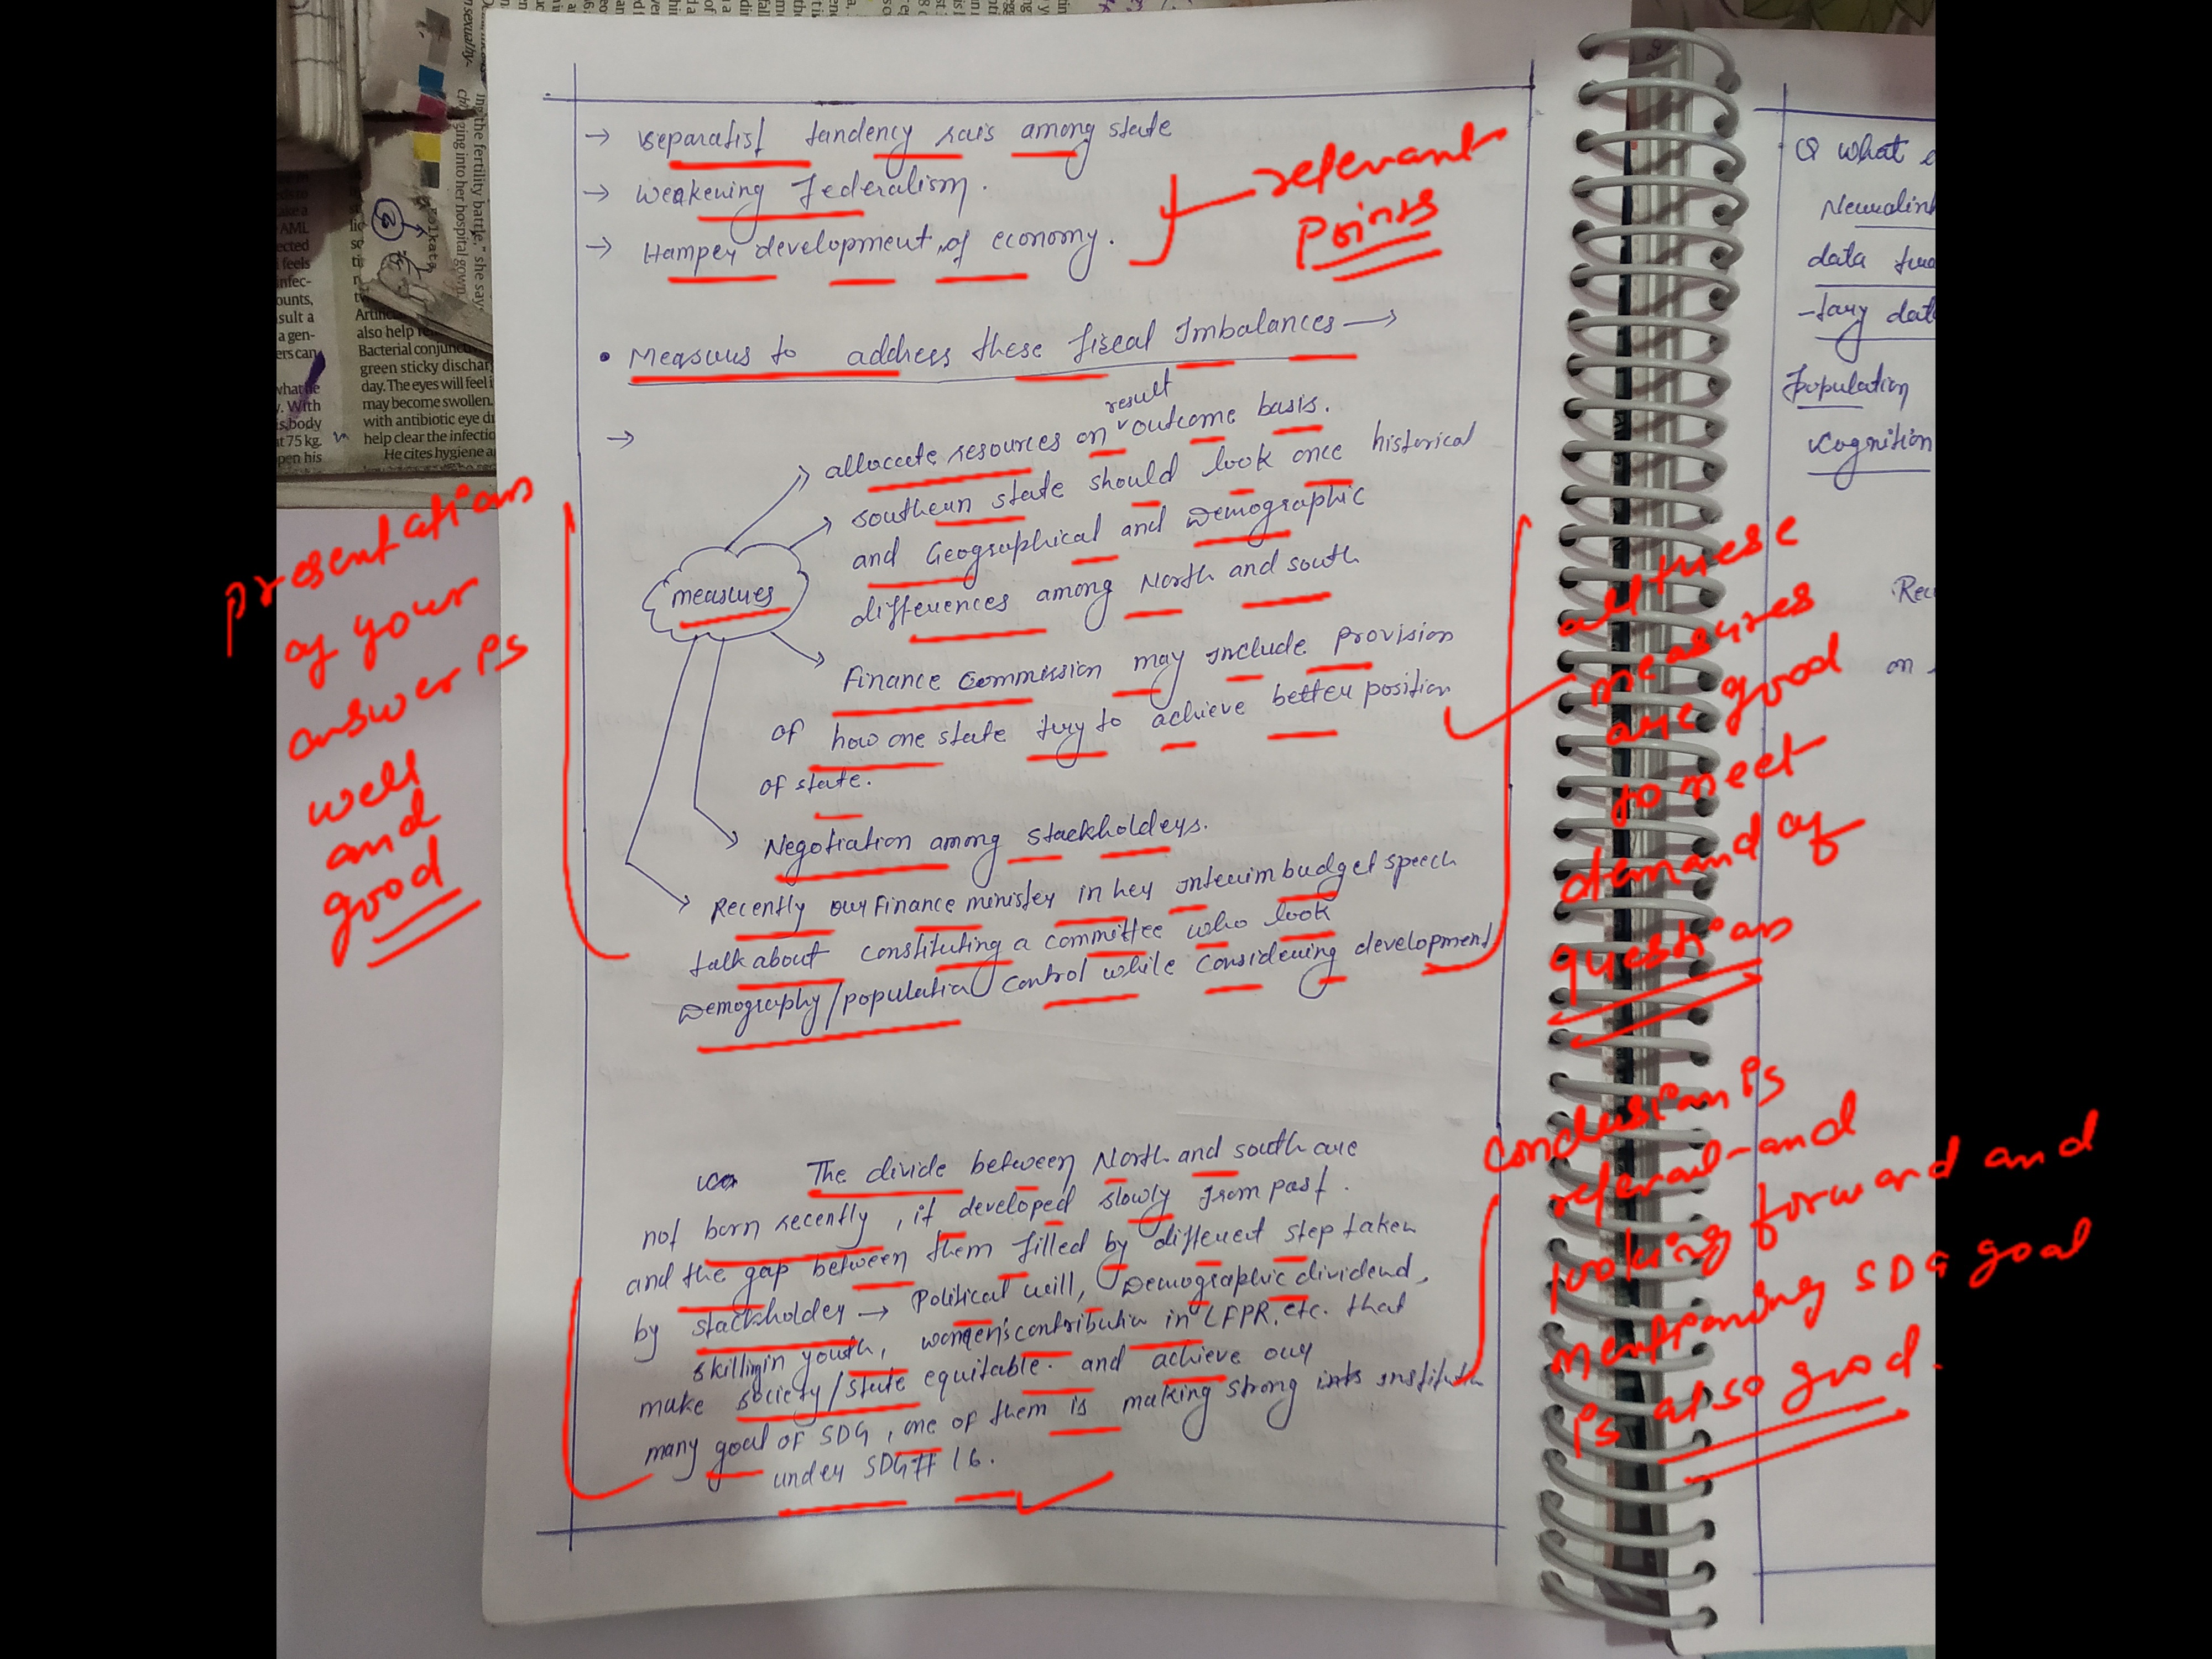 → separatist tandency rais among state
→ weakening Federalism.
→ Hamper development of economy.
relevant
Points
• Measures to address these fiscal Imbalances →
→
measures
result
allocate resources on outcome basis.
southern state should look once historical
and Geographical and Demographic
differences among North and south
Finance Commission may include provision
of how one state try to achieve better position
of state.
Negotiation among stackholders.
Recently our Finance minister in her interim budget speech
talk about constituting a committee who look
Demography/population control while considering development
presentation
of your
answer is
well
and
good
all these
measures
are good
to meet
demand of
question
The divide between North and south are
not born recently, it developed slowly from past.
and the gap between them filled by different step taken
by stackholder → Political will, Demographic dividend,
skilling in youth, women's contribution in LFPR, etc. that
make society/state equitable. and achieve our
many goal of SDG, one of them is making strong institution
under SDG# 16.
conclusion is
looking forward and
SDG goal
is also good.
Q what
Neuralink
data
-tary data
Population
Cognition
on
ing the fertility battle," she say
ging into her hospital gown
Kolkata
2
also help
Bacterial conjunc
green sticky dischar
day. The eyes will feel i
may become swollen.
with antibiotic eye d
help clear the infectio
He cites hygiene a
AML
ected
feels
infec-
ounts,
sult a
a gen-
ers can
. With
s body
at 75 kg.
pen his